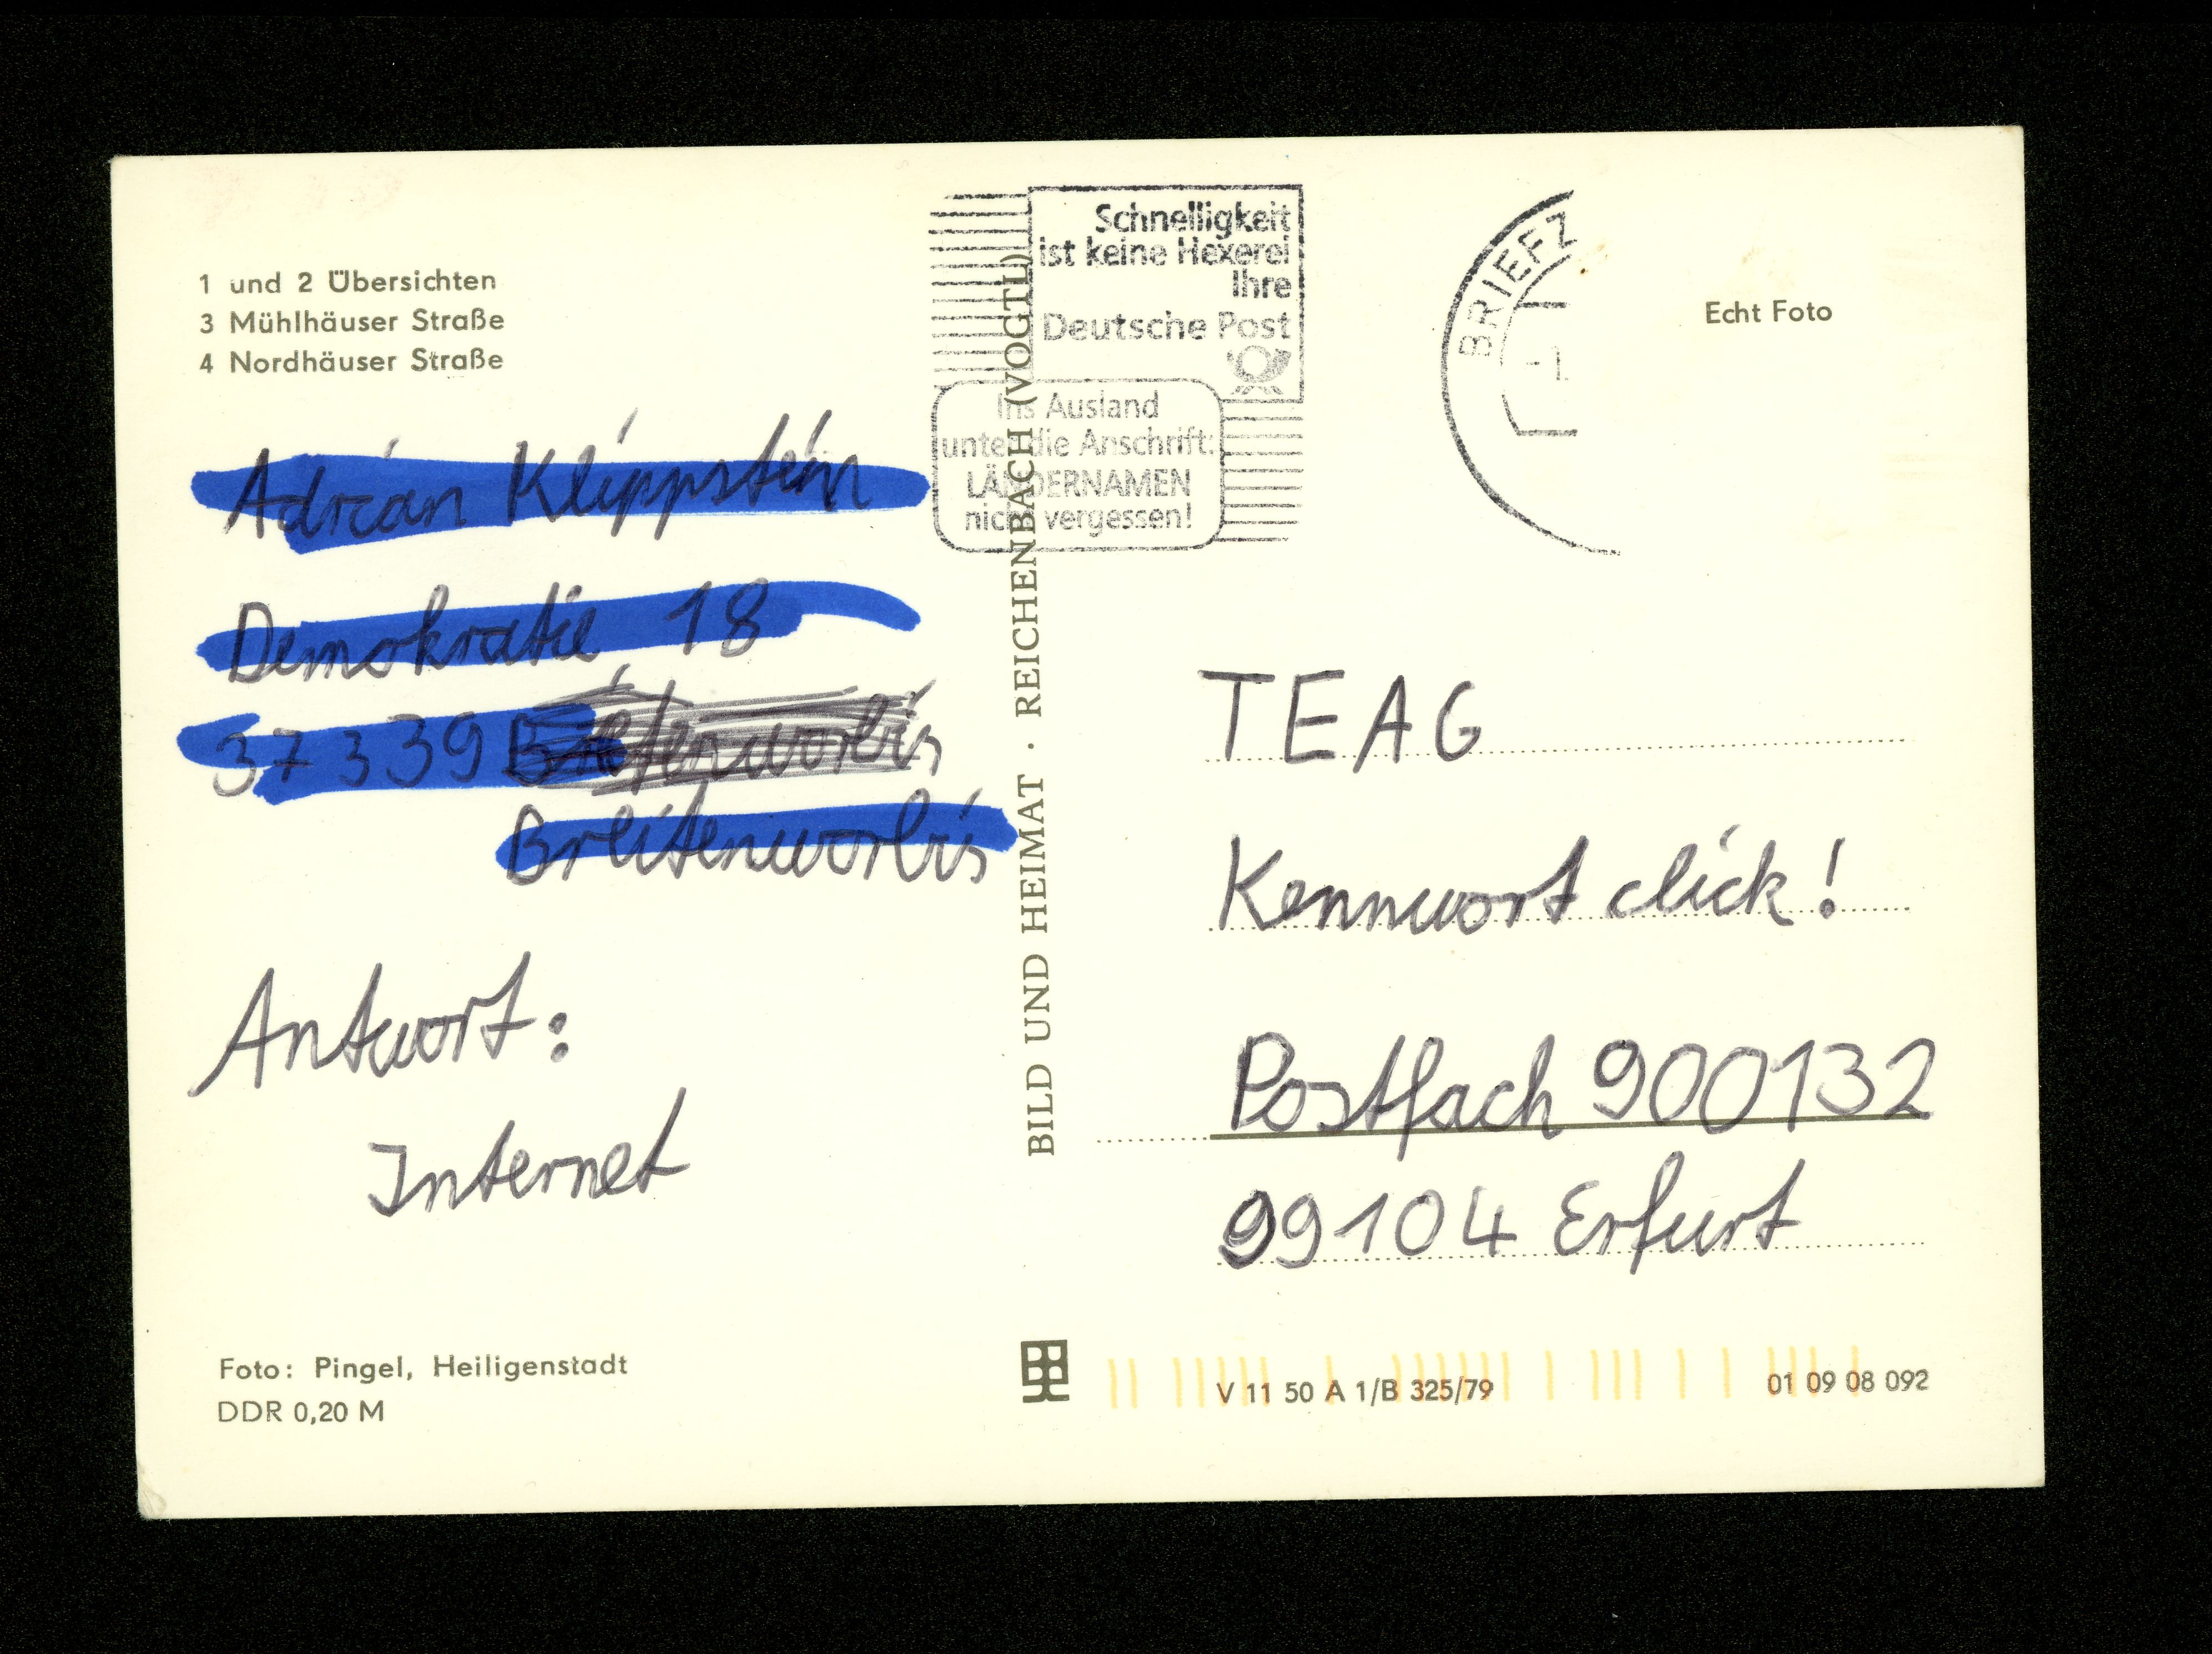 1 und 2 Übersichten
3 Mühlhäuser Straße
4 Nordhäuser Straße
Adrian Klippstein
Demokratie 18
37339 Brietenworbis
Breitenworbis
Antwort:
Internet
Foto: Pingel, Heiligenstadt
DDR 0,20 M
BILD UND HEIMAT · REICHENBACH (VOGTL)
Schnelligkeit
ist keine Hexerei
Ihre
Deutsche Post
Ins Ausland
unter die Anschrift:
LÄNDERNAMEN
nicht vergessen!
BRIEFZ
-1.
Echt Foto
TEAG
Kennwort click!
Postfach 900132
99104 Erfurt
V 11 50 A 1/B 325/79
01 09 08 092